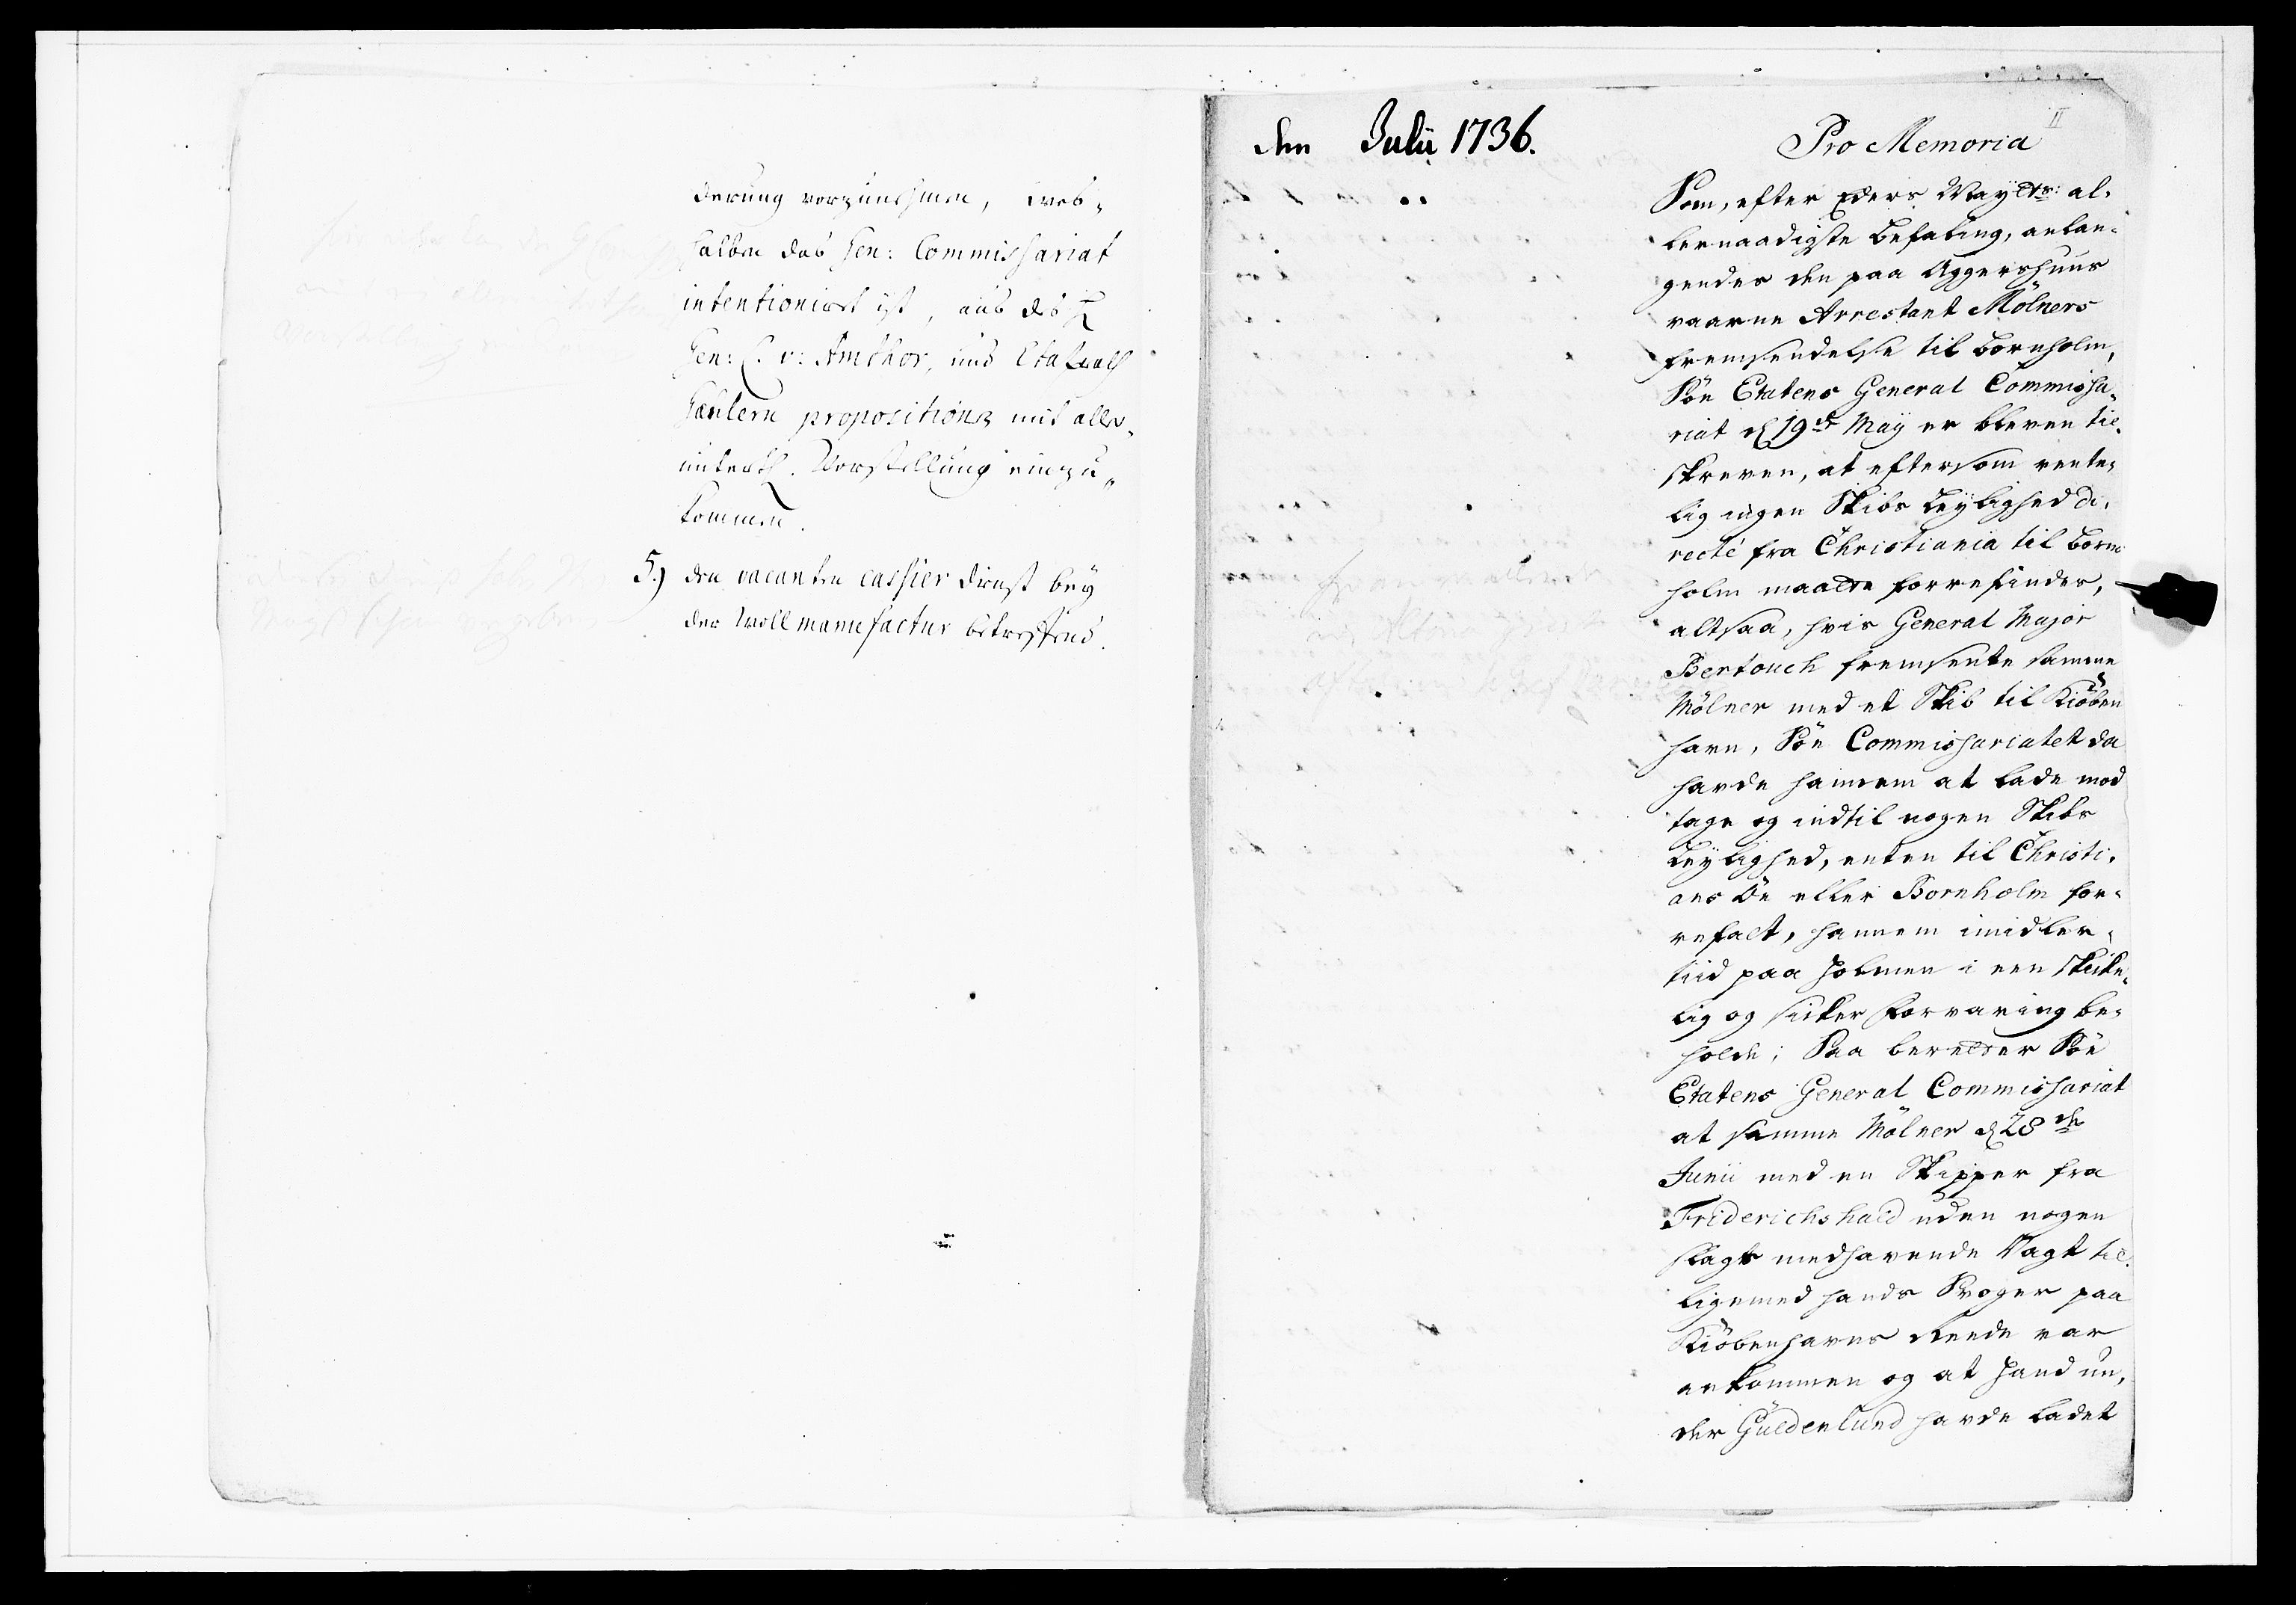 derung vorzunehmen, wes-
halben das Gen: Commissariat
intentionirt ist, aus des H
Gen: L. v: Amthor, und Etatsrath
propositions mit aller-
unterth. Vorstellung einzu-
kommen.
5.) den vacanten cassier dienst bey
der Wollmanufactur betreffend.
den Julii 1736.
II
Pro Memoria
Som, efter Eders Mayts: al-
lernaadigste befaling, anlan-
gendes den paa Aggershuus
vaarne Arrestant Mölners
fremsendelse til Bornholm,
Söe Etatens General Commissa-
riat d 19de Maÿ er bleven til-
skreven, at eftersom vente-
lig ingen Skibs Leÿlighed di-
recté fra Christiania til Born-
holm maatte forrefindes,
altsaa, hvis General Major
Bertouch fremsente samme
Mölner med et Skib til Kiöben
havn, Söe Commissariatet da
havde hannem at lade mod
tage og indtil nogen Skibs
Leÿlighed, enten til Christi-
ans Öe eller Bornholm for-
refalt, hannem imidler-
tiid paa Holmen i een skicke-
lig og sicker forvaring be-
holde; Saa beretter Söe
Etatens General Commissariat
at samme Mölner d 28de
Junii med en Skipper fra
Friderichshald uden nogen
slags medhavende Vagt til-
ligemed hands Svoger paa
Kiöbenhavns Reede var
ankommen og at Hand un-
der Güldenlund havde ladet